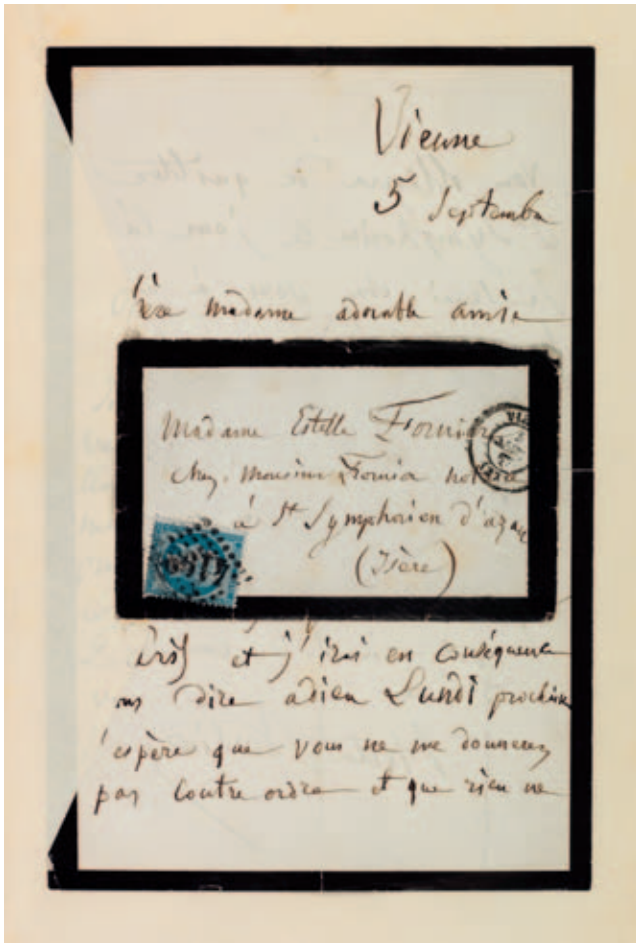 Vienne
5 Septembre
madame adorable amie
Madame Estelle Fornier
chez Monsieur Fornier not
à St Symphorien d'azau
(Isère)
et j'irai en conséquence
ous dire adieu Lundi prochain
'espère que vous ne me donnerez
pas contre ordre et que rien ne